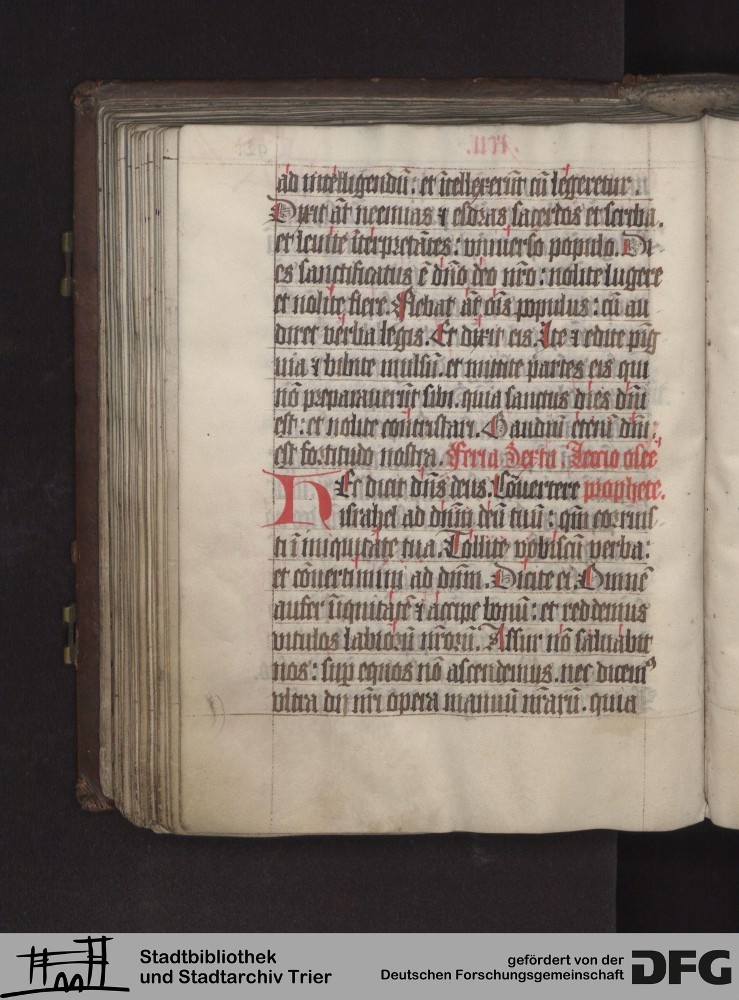 ad intelligendū: et ītellexerūt cū legeretur.
Dixit āt neemias ⁊ esdras sacerdos et scriba.
et leuite īterpretātes: vniuerso populo. Di-
es sanctificatus ē dn̄o deo nr̄o: nolite lugere
et nolite flere. Flebat āt ōis populus: cū au
diret verba legis. Et dixit eis. Ite ⁊ edite pīg
uia ⁊ bibite mulsū. et mittite partes eis qui
nō preparauerūt sibi. quia sanctus dies dn̄i
est: et nolite cōtristari. Gaudiū etenī dn̄i:
est fortitudo nostra. Feria sexta. Lectio osee
Hec dicit dn̄s deus. Cōuertere prophete.
israhel ad dn̄m deū tuū: qm̄ corruis
ti ī iniquitate tua. Tollite vobiscū verba:
et cōuertimini ad dn̄m. Dicite ei. Omnē
aufer īiquitatē ⁊ accipe bonū: et reddemus
vitulos labiorū nr̄orū. Assur nō saluabit
nos: sup equos nō ascendemus. nec dicemꝰ
vltra dij nr̄i opera manuū nr̄arū. quia
Stadtbibliothek
und Stadtarchiv Trier
gefördert von der
Deutschen Forschungsgemeinschaft
DFG